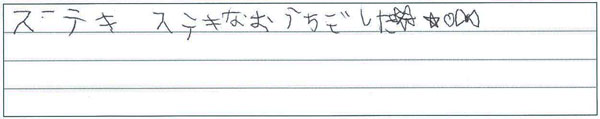 ステキ ステキなおうちでした☆★○⋈